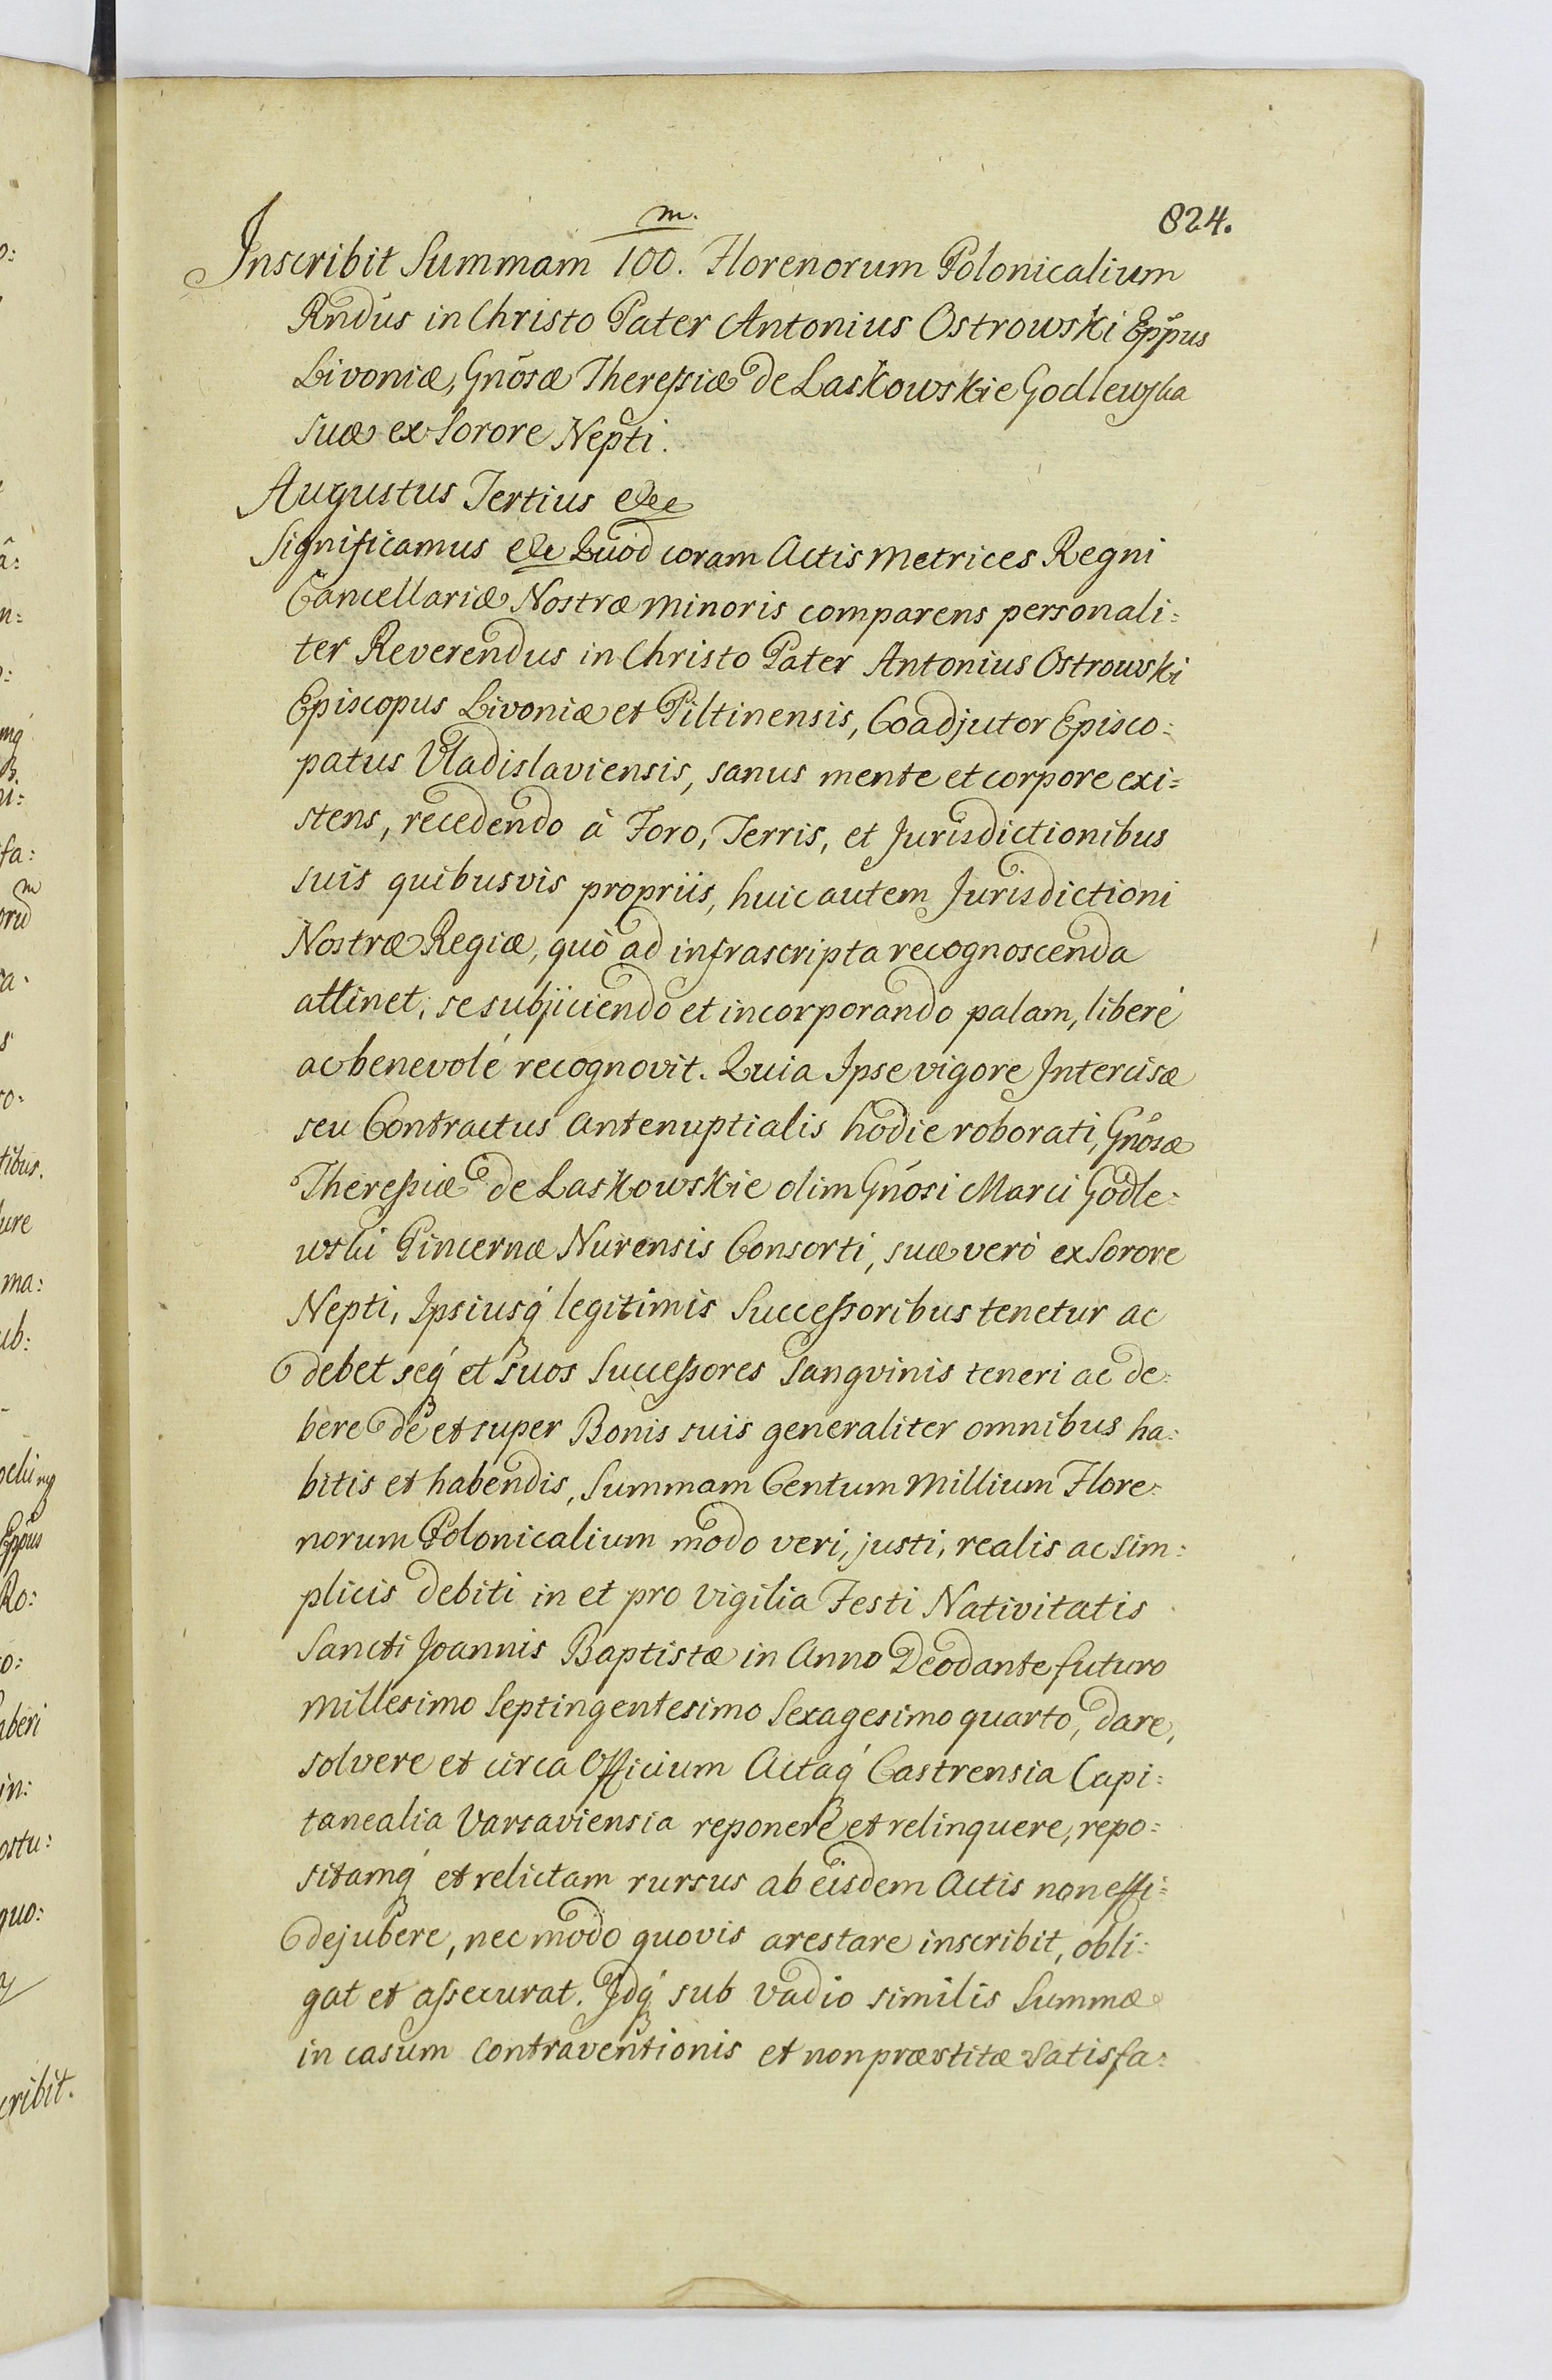 824.
Inscribit Summam 100.m. Florenorum Polonicalium
Rndus in Christo Pater Antonius Ostrowski Eppus
Livoniæ, Gnosæ Theressiæ de Laskowskie Godlewska
suæ ex Sorore Nepti.
Augustus Tertius etc
Significamus etc Quod coram Actis Metrices Regni
Cancellariæ Nostræ Minoris comparens personali:
ter Reverendus in Christo Pater Antonius Ostrowski
Episcopus Livoniæ et Piltinensis, Coadjutor Episco:
patus Vladislaviensis, sanus mente et corpore exi:
stens, recedendo à Foro, Terris, et Jurisdictionibus
suis quibusvis propriis, huic autem Jurisdictioni
Nostræ Regiæ, quò ad infrascripta recognoscenda
attinet, se subjiciendo et incorporando palam, liberé
ac benevolé recognovit. Quia Ipse vigore Intercisæ
seu Contractus Antenuptialis hodie roborati, Gnosæ
Theressiæ de Laskowskie olim Gnosi Marci Godle:
wski Pincernæ Nurensis Consorti, suæ verò ex Sorore
Nepti, Ipsiusq́ legitimis Successoribus tenetur ac
debet seq́ et suos Successores Sangvinis teneri ac de:
bere de et super Bonis suis generaliter omnibus ha:
bitis et habendis, Summam Centum Millium Flore:
norum Polonicalium modo veri, justi, realis ac Sim:
plicis debiti in et pro Vigilia Festi Nativitatis
Sancti Joannis Baptistæ in Anno Deodante futuro
Millesimo Septingentesimo Sexagesimo quarto, dare,
solvere et circa Officium Actaq́ Castrensia Capi:
tanealia Varsaviensia reponere et relinquere, repo:
sitamq́ et relictam rursus ab eisdem Actis non effi:
dejubere, nec modo quovis arestare inscribit, obli:
gat et assecurat. Idq́ sub Vadio similis Summæ
in casum Contraventionis et non præstitæ Satisfa: